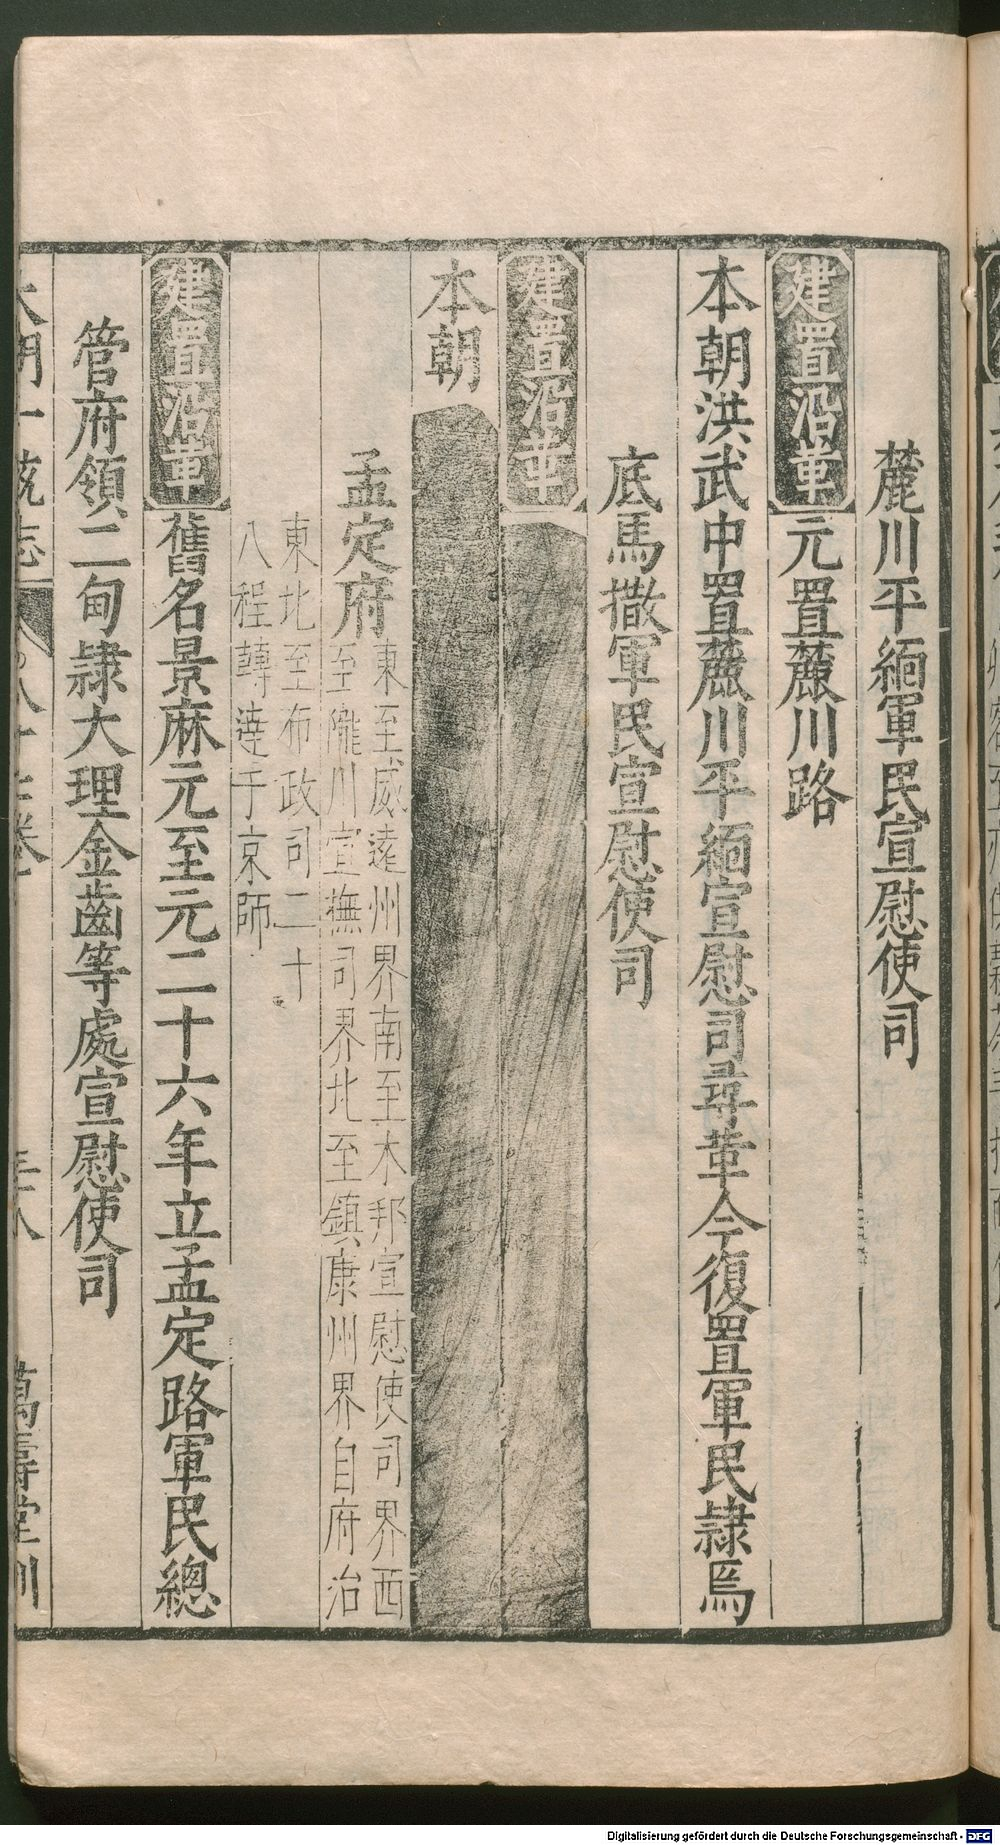 麓川平緬軍民宣慰使司
建置沿革 元置麓川路
本朝洪武中置麓川平緬宣慰司尋革今復置軍民隸焉
底馬撒軍民宣慰使司
建置沿革
本朝
孟定府 東至威遠州界南至木邦宣慰使司界西
至隴川宣撫司界北至鎮康州界自府治
東北至布政司二十
八程轉達于京師
建置沿革 舊名景麻元至元二十六年立孟定路軍民總
管府領二甸隸大理金齒等處宣慰使司
萬壽堂刊
Digitalisierung gefördert durch die Deutsche Forschungsgemeinschaft - DFG